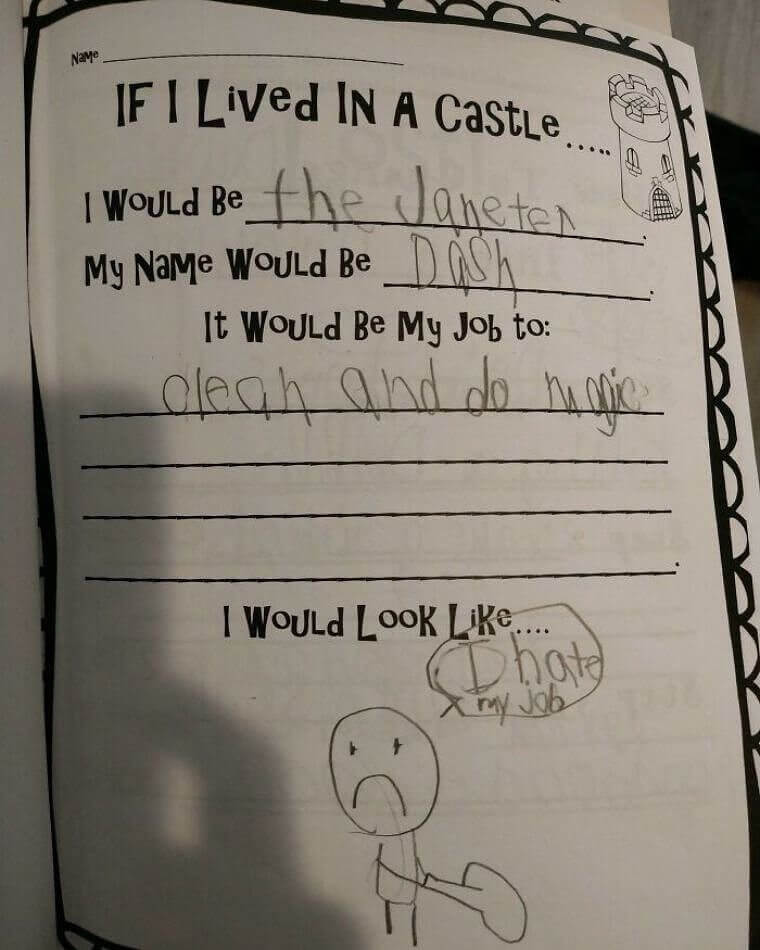 Name
IF I Lived IN A Castle.....
I Would Be the Janeter.
My Name Would Be Dash.
It Would Be My Job to:
clean and do magic
.
I Would Look Like....
I hate
my job